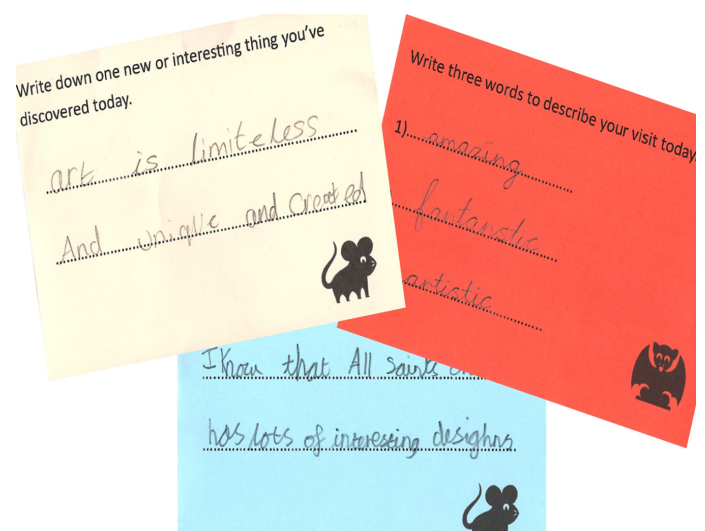 Write down one new or interesting thing you've
discovered today.
art is limiteless
And unique and Created
Write three words to describe your visit today.
1) amazing
fantanstic
artistic
I Know that All Saints
has lots of interesting desighns